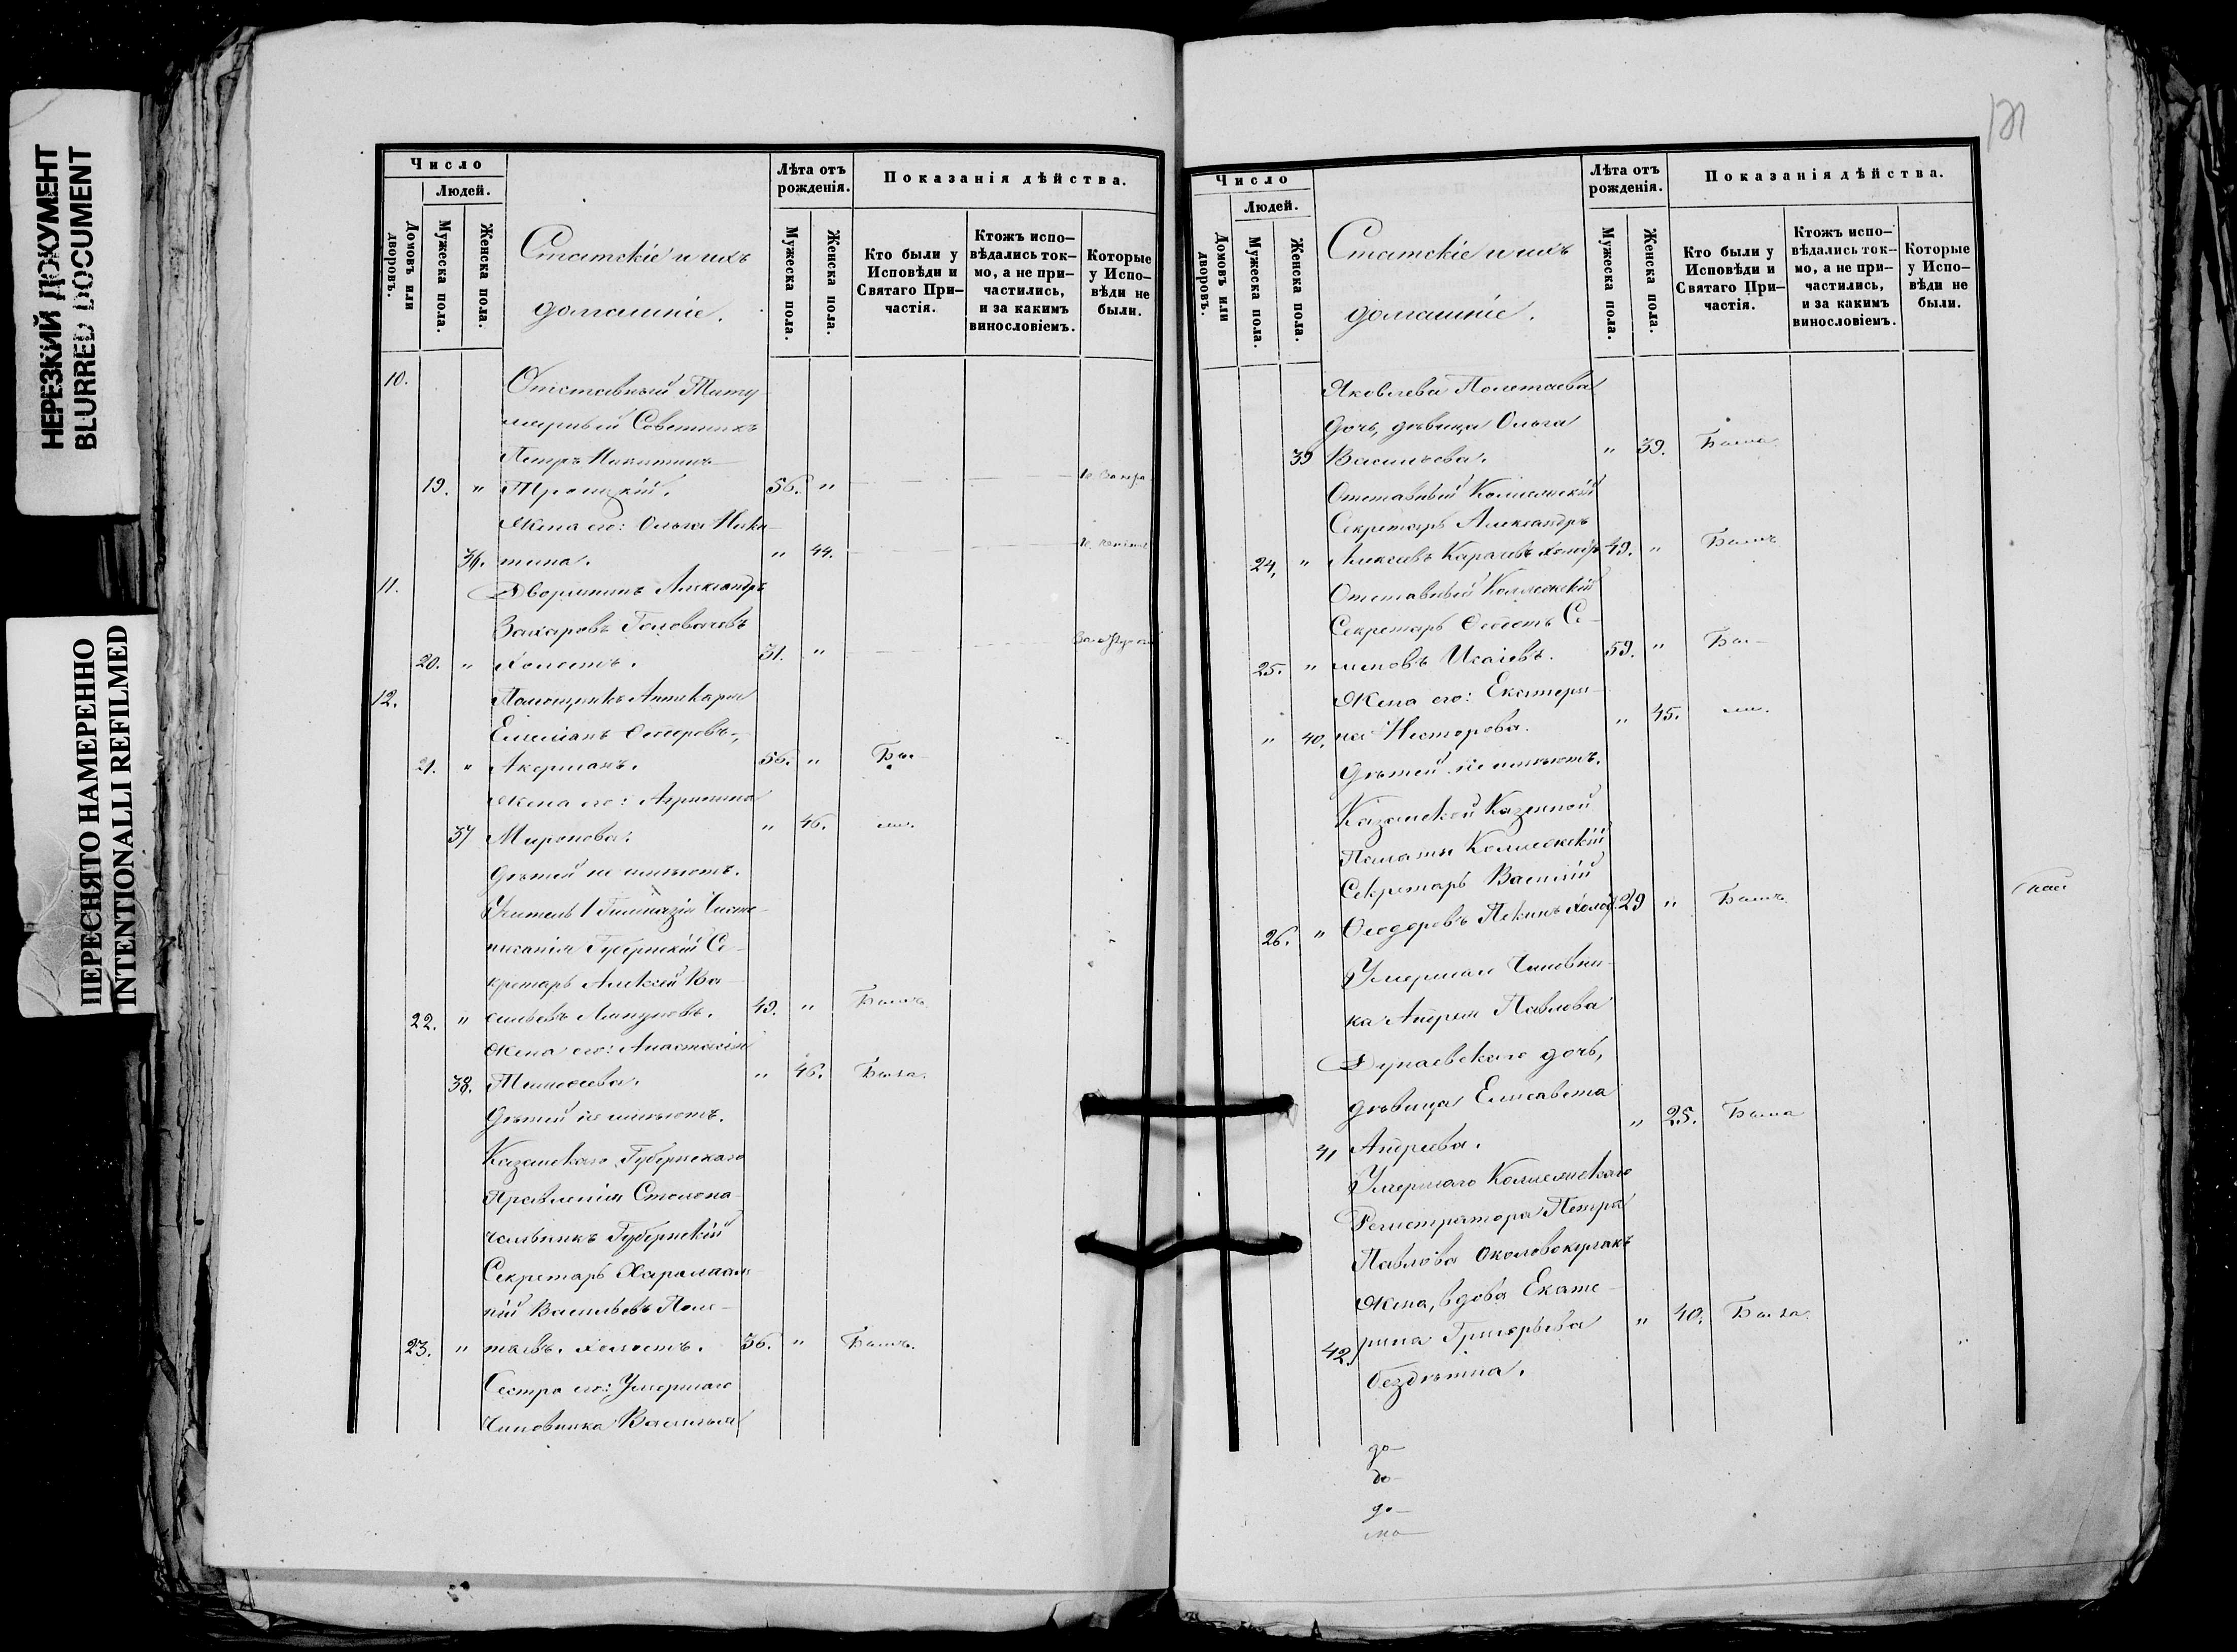 НЕРЕЗКИЙ ДОКУМЕНТ
BLURRED DOCUMENT
ПЕРЕСНЯТО НАМЕРЕННО
INTENTIONALLI REFILMED
Число
Людей.
Домовъ или дворовъ.
Мужеска пола.
Женска пола.
Статскіе и ихъ
домашніе.
Лѣта отъ
рожденія.
Мужеска пола.
Женска пола.
Показанія дѣйства.
Кто были у
Исповѣди и
Святаго При-
частія.
Ктожъ испо-
вѣдались ток-
мо, а не при-
частились,
и за какимъ
винословіемъ.
Которые
у Испо-
вѣди не
были.
10.
Отставный Титу
лярный Советникъ
Петръ Никитинъ
19. " Троицкій. 56. "
Жена его: Ольга Ники
36. тина. " 44.
11. Дворянинъ Александръ
Захаровъ Головачевъ
20. " Холостъ. 31. "
12. Помощникъ Аптекаря
Емиліанъ Ѳедоровъ
21. " Акерманъ. 56. " Бы-
Жена его: Агрипина
37 Миронова. " 46. ли.
Дѣтей не имѣютъ.
Учитель 1 Гимназіи Чисто-
писанія Губернскій Се-
кретарь Алексѣй Ва-
22. " сильевъ Ляпуновъ. 49. " Былъ.
Жена его: Анастасія
38. Тимоѳеева. " 46. Была.
Дѣтей не имѣютъ.
Казанскаго Губернскаго
Правленія Столона-
чальникъ Губернскій
Секретарь Харалам-
пій Васильевъ Поле-
23. " таевъ. холостъ. 36. " Былъ.
Сестра его: Умершаго
Чиновника Василья
121
Число
Людей.
Домовъ или дворовъ.
Мужеска пола.
Женска пола.
Статскіе и ихъ
домашніе.
Лѣта отъ
рожденія.
Мужеска пола.
Женска пола.
Показанія дѣйства.
Кто были у
Исповѣди и
Святаго При-
частія.
Ктожъ испо-
вѣдались ток-
мо, а не при-
частились,
и за какимъ
винословіемъ.
Которые
у Испо-
вѣди не
были.
Яковлева Полетаева
дочь, дѣвица Ольга
39 Васильева. " 39. Была
Отставный Коллежскій
Секретарь Александръ
24, " Алексѣевъ 49. " Былъ
Отставный Коллежскій
Секретарь Се-
25. " меновъ Исаіевъ. 59. " Бы-
Жена его: Екатери-
" 40. на Несторова. " 45. ли.
Дѣтей не имѣютъ.
Казанской Казенной
Палаты Коллежскій
Секретарь Василій
26. " Ѳеодоровъ 29 " Былъ
Умершаго Чиновни-
ка Андрея Павлова
Дунаевскаго дочь,
дѣвица Елисавета
41 Андреева. " 25. Была
Умершаго Коллежскаго
Регистратора Петра
Павлова
Жена, вдова Екате-
42. рина Григорьева " 40. Была.
бездѣтна.
до-
до-